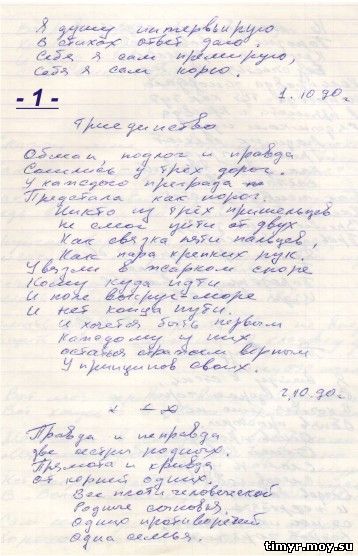 Я душу интервьюирую
В стихах ответ даю.
Себя я сам премирую,
Себя я сам корю.
- 1 -
1.10.90г
Триединство
Обман, подлог и правда
Сошлись у трёх дорог.
У каждого преграда
Предстала как порог.
Никто из трёх пришельцев
Не смог уйти от двух
Как связка пяти пальцев,
Как пара крепких рук.
Увязли в жарком споре
Кому куда идти
И поле вокруг – море
И нет конца пути.
И хочется быть первым
Каждому у них
остаться стражем верным
У принципов своих.
2.10.90г
Правда и неправда
две сестры родных.
Прямота и кривда
от корней одних.
Все плоти человеческой
Родные сыновья,
Одних противоречий
Одна семья.
timyr.moy.su